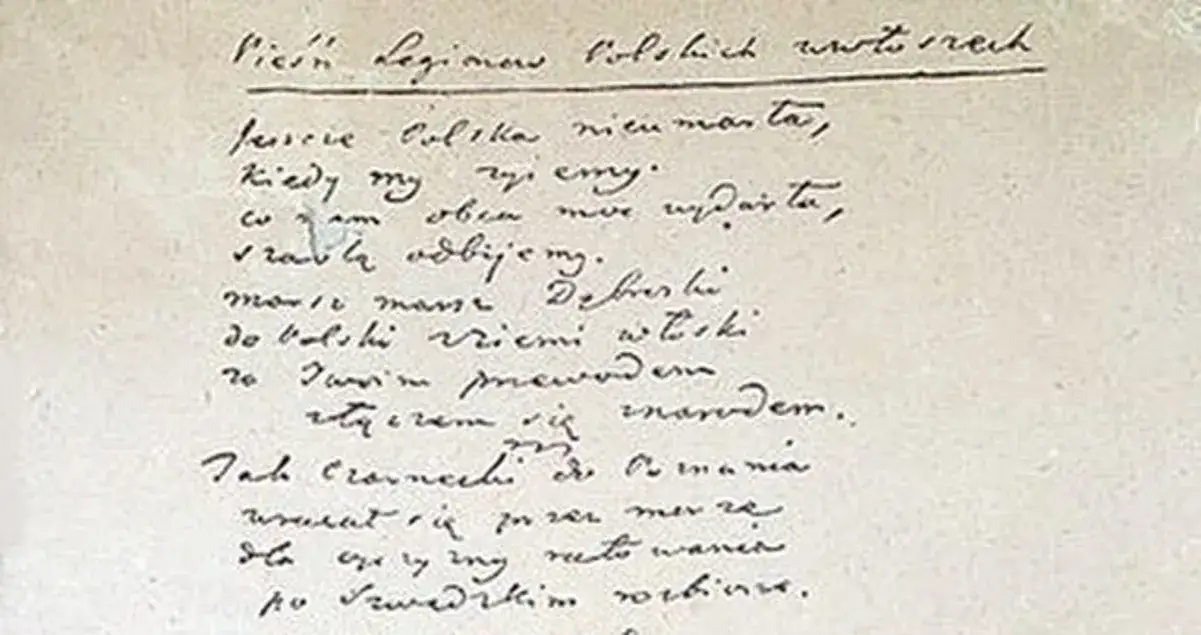 Pieśń Legionow Polskich wewłoszech
Jeszcze Polska nieumarła,
kiedy my zyiemy.
co nam obca moc wydarła,
szablą odbijemy.
marsz marsz Dąbroski
do Polski z Ziemi włoski
za Twoim przewodem
złączem się znarodem.
Jak Czarnecki do Poznania
wracał się przez morze
dla oyczyzny ratowania
po Szwedzkim rozbiorze.